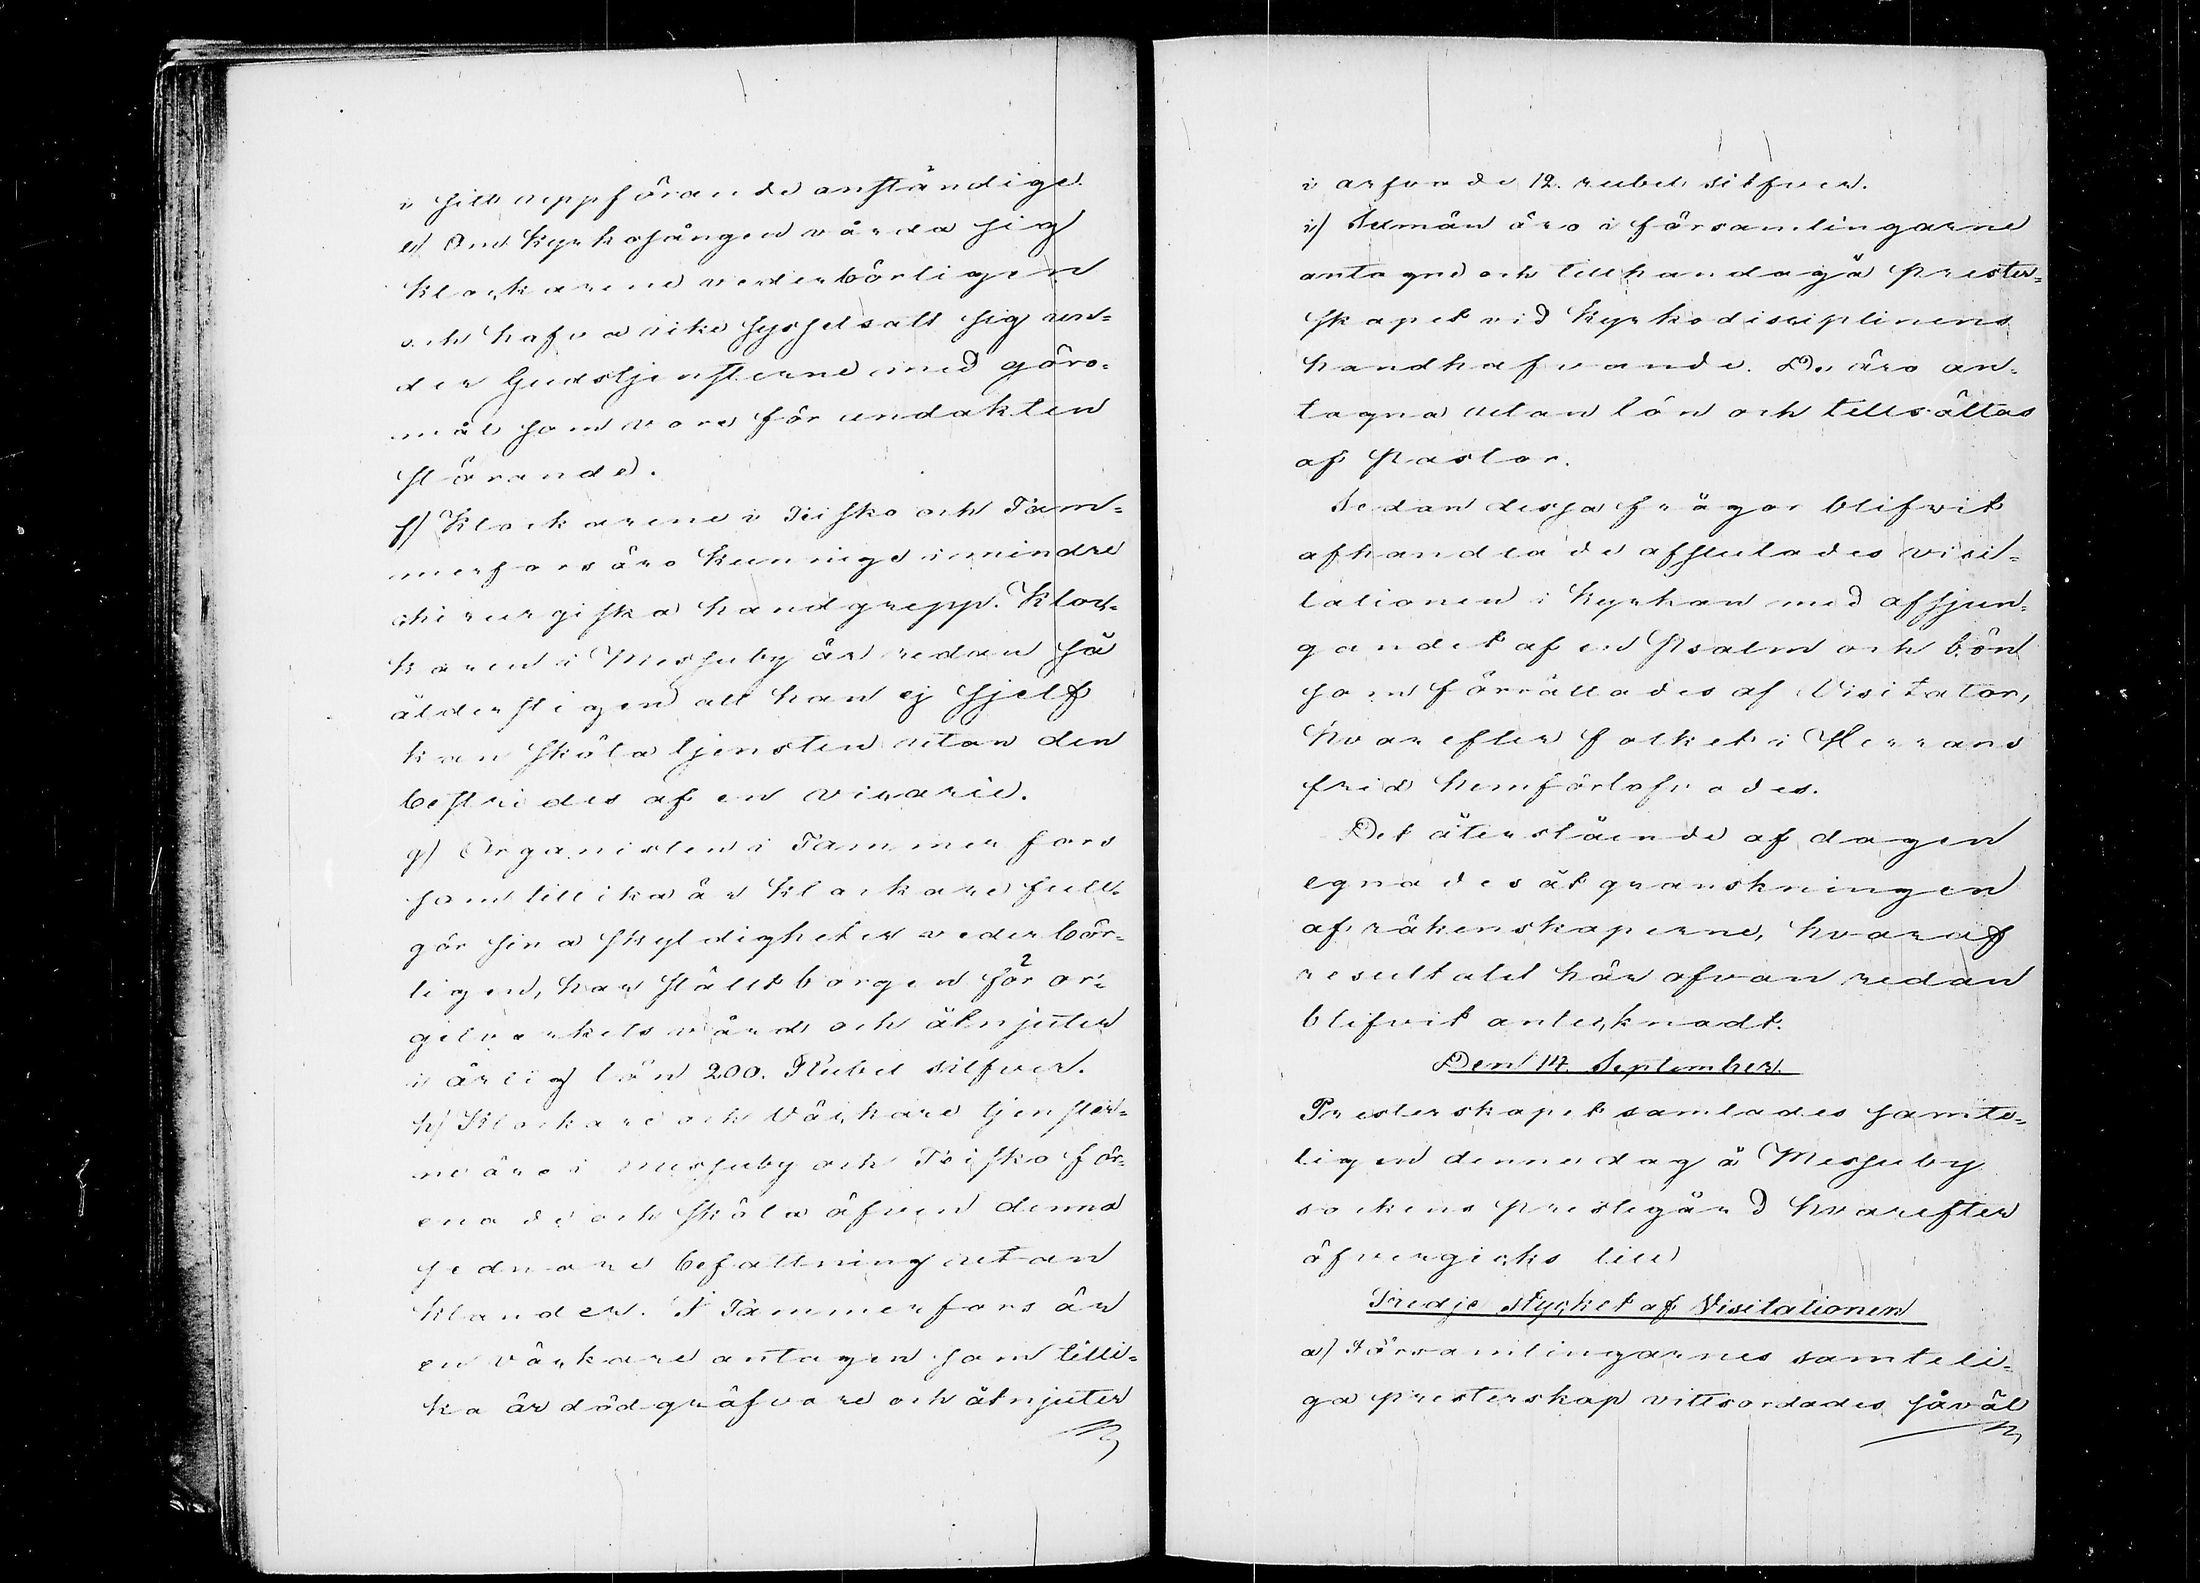 i sitt uppförande anständige.
e) Om Kyrkosången vårda sig
klockarene vederbörligen
och hafva icke sysselsatt sig un=
der Gudstjensterne med göro=
mål som vore för andakten
störande.
f) Klockarene i Teisko och Tam=
merfors äro kunnige i mindre
chirurgiska handgrepp. Kloc=
karen i Messuby är redan så
ålderstigen att han ej sjelf
kan sköta tjensten utan den
bestrides af en vicarie.
g) Organisten i Tammerfors
som tillika är klockare full=
gör sina skyldigheter vederbör=
ligen, har stält borgen för or=
gelverkets vård och åtnjuter
i årlig lön 200. Rubel silfver.
h) Klockare och Väckare tjenster=
ne äro i Messuby och Teisko för=
enade och sköta äfven denna
sednare befattning utan
klander. I Tammerfors är
en väckare antagen som tilli=
ka är dödgräfvare och åtnjuter
i arfvode 12. rubel silfver.
i) Sexmän äro i församlingarne
antagne och tillhandagå prester=
skapet vid Kyrkodisciplinens
handhafvande. De äro an=
tagna utan lön och tillsättas
af Pastor.
Sedan dessa frågor blifvit
afhandlade afslutades visi=
tationen i Kyrkan med afsjun=
gandet af en Psalm och bön
som förrättades af Visitator,
hvarefter folket i Herrans
frid hemförlofvades.
Det återstående af dagen
egnades åt granskningen
af räkenskaperne, hvaraf
resultatet här ofvan redan
blifvit antecknadt.
Den 14 September.
Presterskapet samlades samte=
ligen denna dag å Messuby
sockens prestegård hvarefter
öfvergicks till
Tredje stycket af Visitationen
a) Församlingarnes samteli=
ga presterskap vittsordades såväl